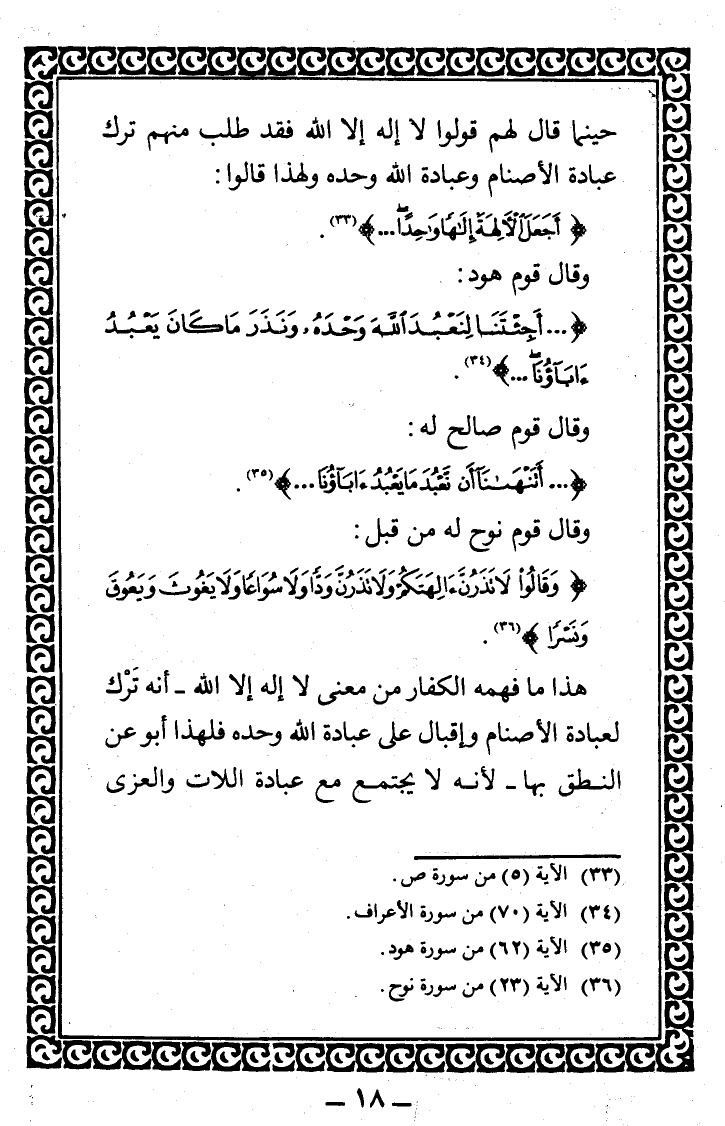 حينما قال لهم قولوا لا إله إلا الله فقد طلب منهم ترك
عبادة الأصنام وعبادة الله وحده ولهذا قالوا:
﴿ أَجَعَلَ ٱلْأَلِهَةَ إِلَٰهًا وَٰحِدًاۖ ... ﴾(٣٣) .
وقال قوم هود:
﴿ ... أَجِئْتَنَا لِنَعْبُدَ ٱللَّهَ وَحْدَهُۥ وَنَذَرَ مَا كَانَ يَعْبُدُ
ءَابَآؤُنَاۖ ... ﴾(٣٤) .
وقال قوم صالح له:
﴿ ... أَتَنْهَىٰنَآ أَن نَّعْبُدَ مَا يَعْبُدُ ءَابَآؤُنَا ... ﴾(٣٥) .
وقال قوم نوح له من قبل:
﴿ وَقَالُوا۟ لَا تَذَرُنَّ ءَالِهَتَكُمْ وَلَا تَذَرُنَّ وَدًّا وَلَا سُوَاعًا وَلَا يَغُوثَ وَيَعُوقَ
وَنَسْرًا ﴾(٣٦) .
هذا ما فهمه الكفار من معنى لا إله إلا الله ـ أنه تَرْك
لعبادة الأصنام وإقبال على عبادة الله وحده فلهذا أبو عن
النطق بها ـ لأنه لا يجتمع مع عبادة اللات والعزى
(٣٣) الآية (٥) من سورة ص.
(٣٤) الآية (٧٠) من سورة الأعراف.
(٣٥) الآية (٦٢) من سورة هود.
(٣٦) الآية (٢٣) من سورة نوح.
ـ ١٨ ـ